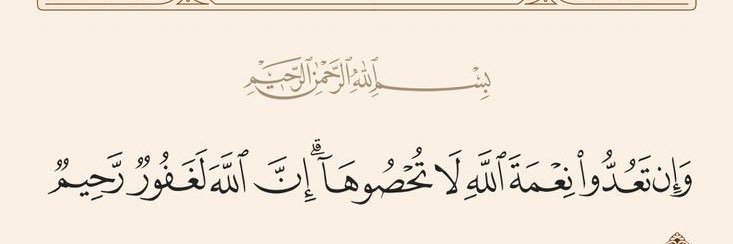 بِسْمِ ٱللَّهِ ٱلرَّحْمَٰنِ ٱلرَّحِيمِ
وَإِن تَعُدُّوا۟ نِعْمَةَ ٱللَّهِ لَا تُحْصُوهَآ ۗ إِنَّ ٱللَّهَ لَغَفُورٌ رَّحِيمٌ